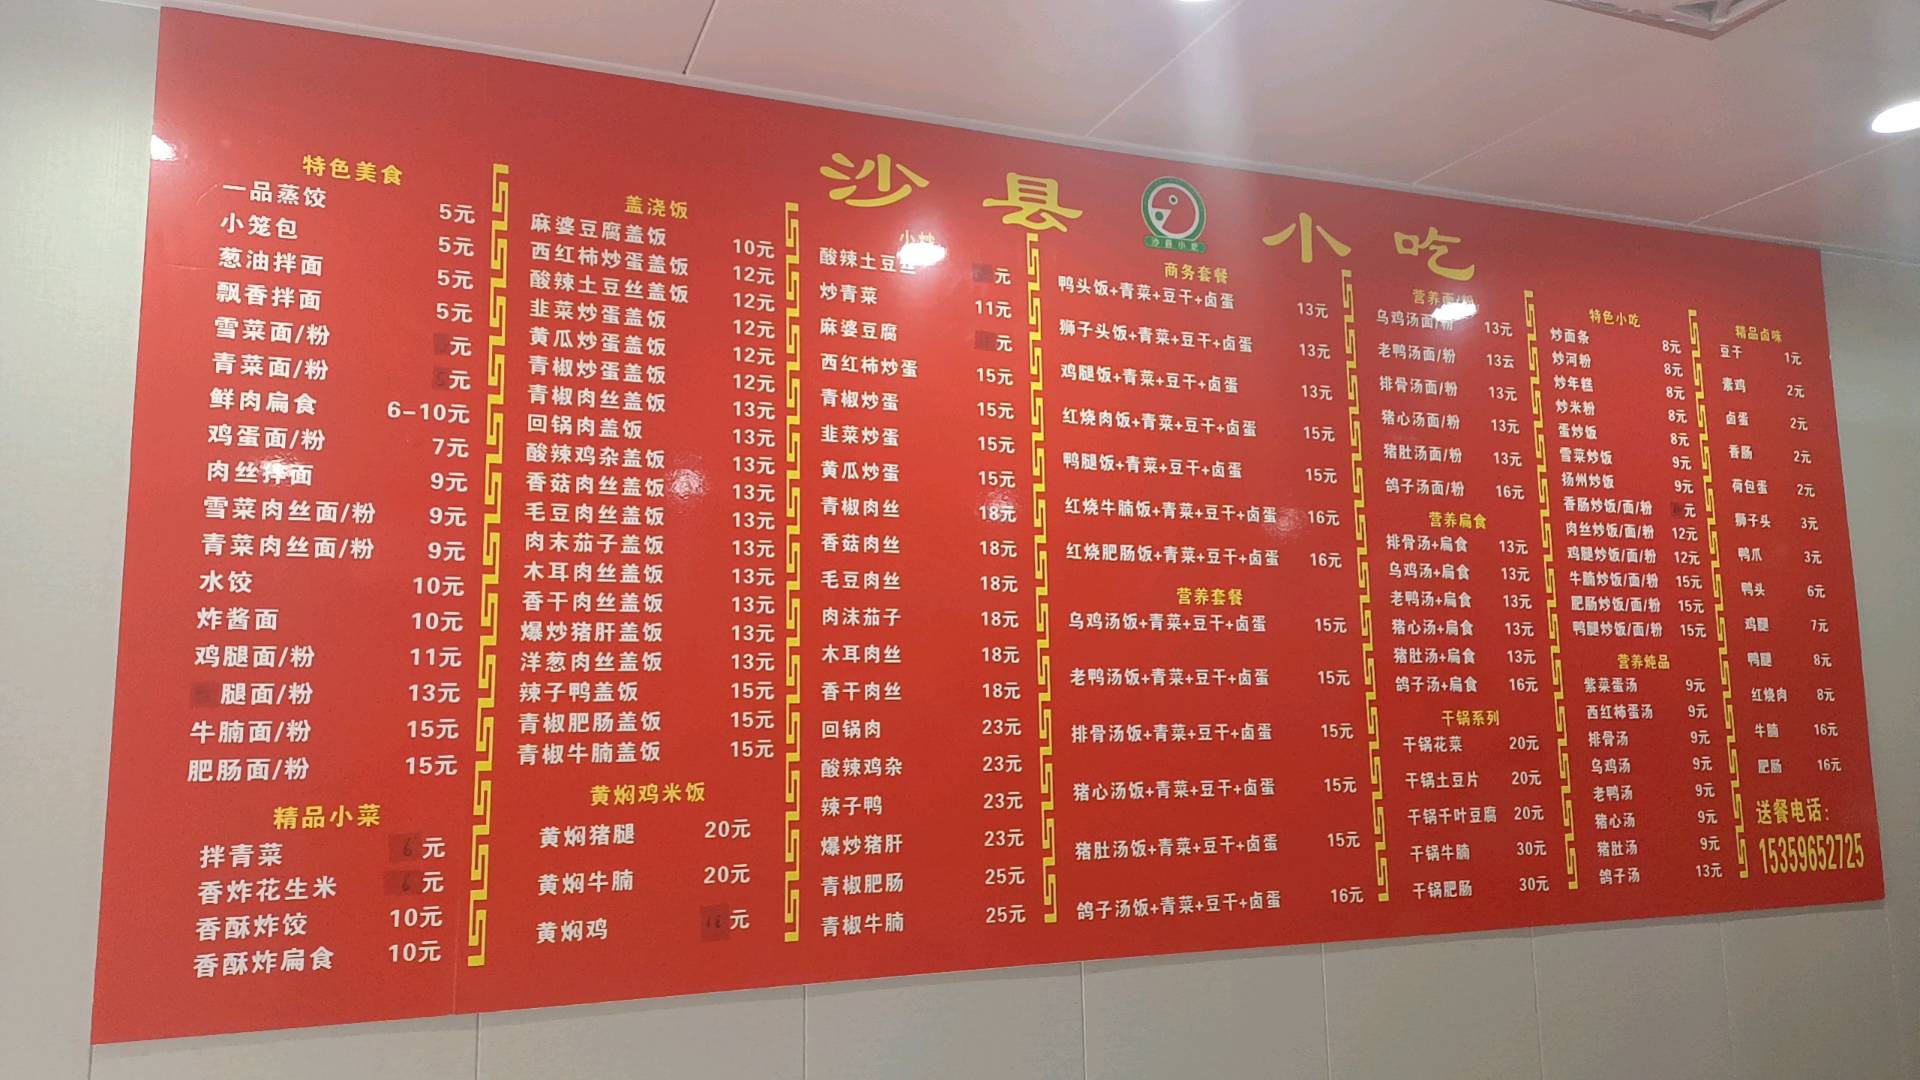 沙县小吃
沙县小吃
特色美食
一品蒸饺 5元
小笼包 5元
葱油拌面 5元
飘香拌面 5元
雪菜面/粉 元
青菜面/粉 元
鲜肉扁食 6-10元
鸡蛋面/粉 7元
肉丝拌面 9元
雪菜肉丝面/粉 9元
青菜肉丝面/粉 9元
水饺 10元
炸酱面 10元
鸡腿面/粉 11元
腿面/粉 13元
牛腩面/粉 15元
肥肠面/粉 15元
精品小菜
拌青菜 6元
香炸花生米 6元
香酥炸饺 10元
香酥炸扁食 10元
盖浇饭
麻婆豆腐盖饭 10元
西红柿炒蛋盖饭 12元
酸辣土豆丝盖饭 12元
韭菜炒蛋盖饭 12元
黄瓜炒蛋盖饭 12元
青椒炒蛋盖饭 12元
青椒肉丝盖饭 13元
回锅肉盖饭 13元
酸辣鸡杂盖饭 13元
香菇肉丝盖饭 13元
毛豆肉丝盖饭 13元
肉末茄子盖饭 13元
木耳肉丝盖饭 13元
香干肉丝盖饭 13元
爆炒猪肝盖饭 13元
洋葱肉丝盖饭 13元
辣子鸭盖饭 15元
青椒肥肠盖饭 15元
青椒牛腩盖饭 15元
黄焖鸡米饭
黄焖猪腿 20元
黄焖牛腩 20元
黄焖鸡 元
小炒
酸辣土豆丝 元
炒青菜 11元
麻婆豆腐 元
西红柿炒蛋 15元
青椒炒蛋 15元
韭菜炒蛋 15元
黄瓜炒蛋 15元
青椒肉丝 18元
香菇肉丝 18元
毛豆肉丝 18元
肉沫茄子 18元
木耳肉丝 18元
香干肉丝 18元
回锅肉 23元
酸辣鸡杂 23元
辣子鸭 23元
爆炒猪肝 23元
青椒肥肠 25元
青椒牛腩 25元
商务套餐
鸭头饭+青菜+豆干+卤蛋 13元
狮子头饭+青菜+豆干+卤蛋 13元
鸡腿饭+青菜+豆干+卤蛋 13元
红烧肉饭+青菜+豆干+卤蛋 15元
鸭腿饭+青菜+豆干+卤蛋 15元
红烧牛腩饭+青菜+豆干+卤蛋 16元
红烧肥肠饭+青菜+豆干+卤蛋 16元
营养套餐
乌鸡汤饭+青菜+豆干+卤蛋 15元
老鸭汤饭+青菜+豆干+卤蛋 15元
排骨汤饭+青菜+豆干+卤蛋 15元
猪心汤饭+青菜+豆干+卤蛋 15元
猪肚汤饭+青菜+豆干+卤蛋 15元
鸽子汤饭+青菜+豆干+卤蛋 16元
营养面/粉
乌鸡汤面/粉 13元
老鸭汤面/粉 13云
排骨汤面/粉 13元
猪心汤面/粉 13元
猪肚汤面/粉 13元
鸽子汤面/粉 16元
营养扁食
排骨汤+扁食 13元
乌鸡汤+扁食 13元
老鸭汤+扁食 13元
猪心汤+扁食 13元
猪肚汤+扁食 13元
鸽子汤+扁食 16元
干锅系列
干锅花菜 20元
干锅土豆片 20元
干锅千叶豆腐 20元
干锅牛腩 30元
干锅肥肠 30元
特色小吃
炒面条 8元
炒河粉 8元
炒年糕 8元
炒米粉 8元
蛋炒饭 8元
雪菜炒饭 9元
扬州炒饭 9元
香肠炒饭/面/粉 元
肉丝炒饭/面/粉 12元
鸡腿炒饭/面/粉 12元
牛腩炒饭/面/粉 15元
肥肠炒饭/面/粉 15元
鸭腿炒饭/面/粉 15元
营养炖品
紫菜蛋汤 9元
西红柿蛋汤 9元
排骨汤 9元
乌鸡汤 9元
老鸭汤 9元
猪心汤 9元
猪肚汤 9元
鸽子汤 13元
精品卤味
豆干 1元
素鸡 2元
卤蛋 2元
香肠 2元
荷包蛋 2元
狮子头 3元
鸭爪 3元
鸭头 6元
鸡腿 7元
鸭腿 8元
红烧肉 8元
牛腩 16元
肥肠 16元
送餐电话：
15359652725